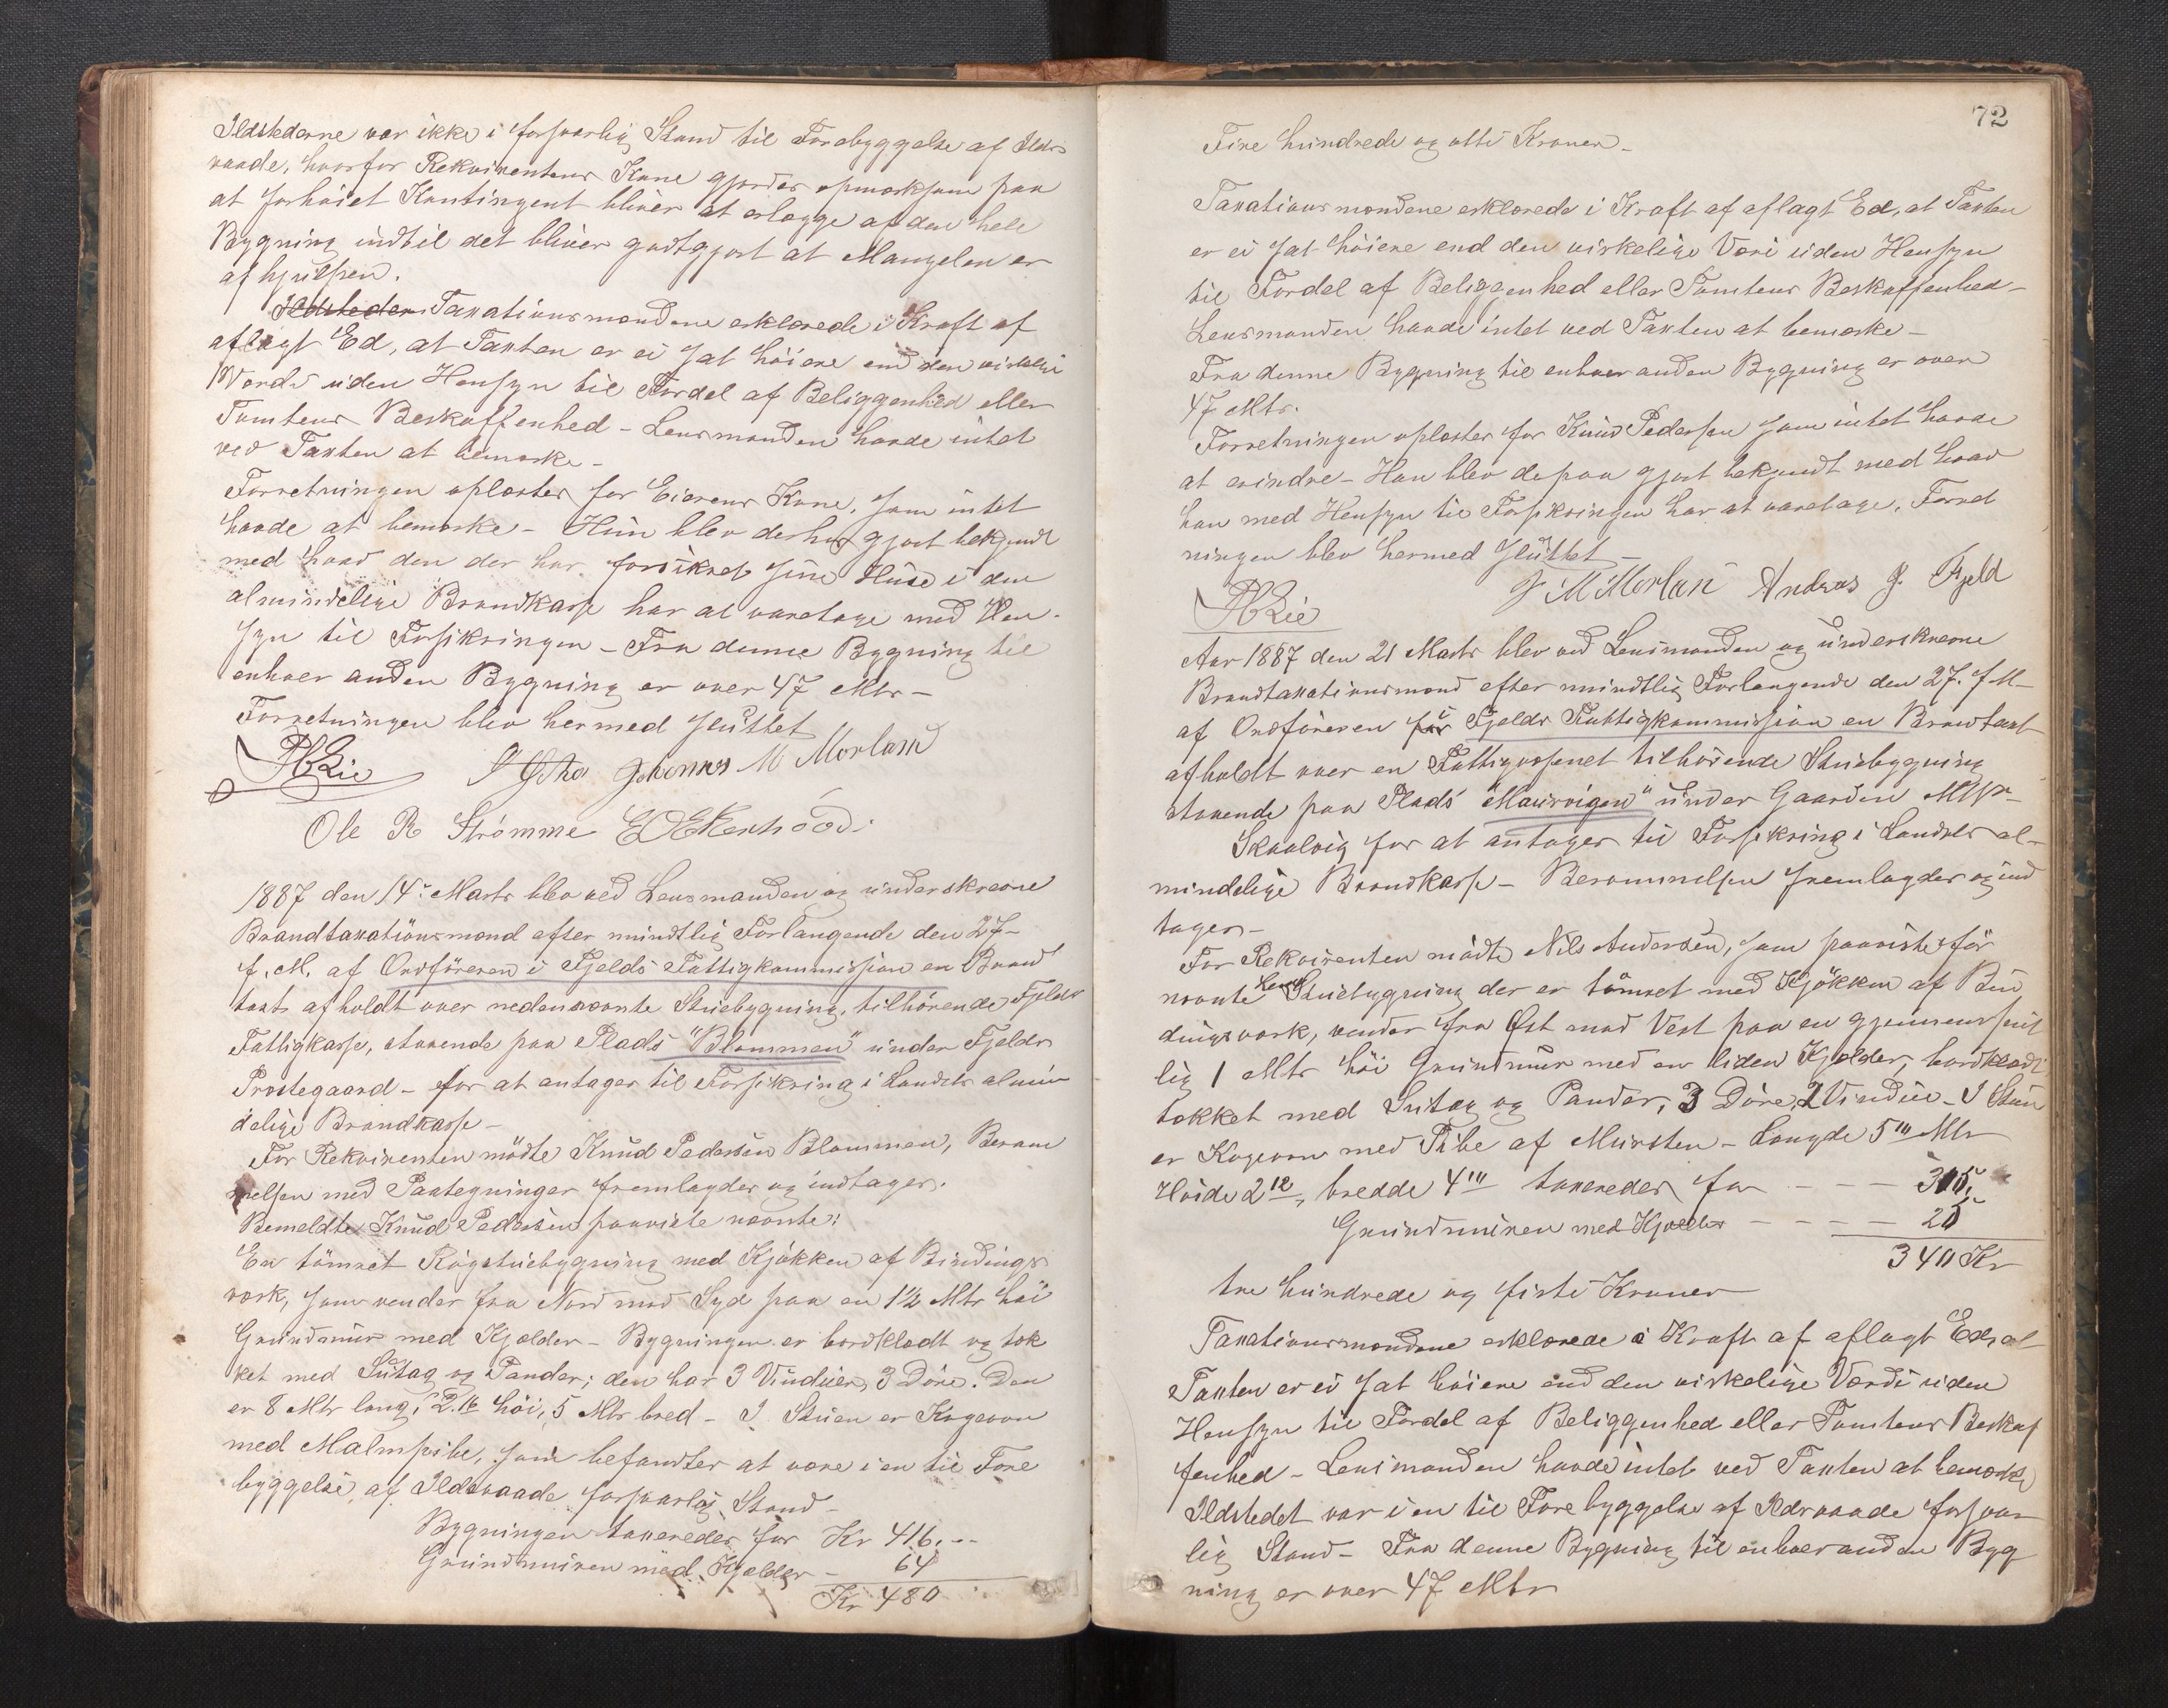 Ildstederne var ikke i forsvarlig Stand til Forebyggelse af Ilds
vaade, hvorfor Rekvirentens Kone gjordes opmærksom paa
at forhøiet Kontingent bliver at erlægge af den hele
Bygning indtil det bliver godtgjort at Mangelen er
afhjulpen.
Ildsteden Taxationsmændene erklærede i Kraft af
aflagt Ed, at Taxten er ei sat høiere end den virkelige
Værdi uden Hensyn til Fordel af Beliggenhed eller
Tomtens Beskaffenhed - Lensmanden havde intet
ved Taxten at bemærke -
Forretningen oplæstes for Eierens Kone, som intet
havde at bemærke - Hun blev derhos gjort bekjendt
med hvad den der har forsikret sine Huse i den
almindelige Brandkasse har at varetage med Hen-
syn til Forsikringen - Fra denne Bygning til
enhver anden Bygning er over 47 Mtr -
Forretningen blev hermed sluttet
Johannes M Morland
Ole R Strømme
1887 den 14de Marts blev ved Lensmanden og underskrevne
Brandtaxationsmænd efter mundtlig Forlangende den 27-
f. M. af Ordføreren i Fjelds Fattigkommission en Brand
taxt afholdt over nedennævnte Stuebygning, tilhørende Fjelds
Fattigkasse, staaende paa Plads "Blommen" under Fjelds
Prestegaard - for at antages til Forsikring i Landets almin
delige Brandkasse -
For Rekvirenten mødte Knud Pedersen Blommen, Beram
melsen med Paategninger fremlagdes og indtages.
Bemeldte Knud Pedersen paaviste nævnte:
En tømret Røgstuebygning med Kjøkken af Bindings
værk, som vender fra Nord mod Syd paa en 1½ Mtr høi
Grundmur med Kjælder - Bygningen er bordklædt og tæk
ket med Sutag og Pander; den har 3 Vinduer, 3 Døre. Den
er 8 Mtr lang, 2.16 høi, 5 Mtr bred - I Stuen er Kogeovn
med Malmpibe, som befandtes at være i en til Fore
byggelse af Ildsvaade forsvarlig Stand -
Bygningen taxeredes for Kr 416. --
Grundmuren med Kjælder - 64
Kr 480
72
Fire hundrede og otti Kroner -
Taxationsmændene erklærede i Kraft af aflagt Ed, at Taxten
er ei sat høiere end den virkelige Væri uden Hensyn
til Fordel af Beliggenhed eller Tomtens Beskaffenhed -
Lensmanden havde intet ved Taxten at bemærke -
Fra denne Bygning til enhver anden Bygning er over
47 Mtr.
Forretningen oplæstes for Knud Pedersen som intet havde
at erindre - Han blev depaa gjort bekjendt med hvad
han med Hensyn til Forsikringen har at varetage. Forret
ningen blev hermed sluttet -
J M Morland Andreas J. Fjeld
Aar 1887 den 21 Marts blev ved Lensmanden og underskrevne
Brandtaxationsmænd efter mundtlig Forlangende den 27. f M -
af Ordføreren i Fjelds Fattigkommission en Brandtaxt
afholdt over en Fattigvæsenet tilhørende Stuebygning
staaende paa Plads "Maurvigen" under Gaarden
Skaalvig for at antages til Forsikring i Landets al-
mindelige Brandkasse - Berammelsen fremlagdes og ind
tages -
For Rekvirenten mødte Nils Andersen, som paaviste før
nævnte Stuebygning der er tømret med Kjøkken af Bin
dingsværk, vender fra Øst mod Vest paa en gjennemsnit
lig 1 Mtr høi Grundmur med en liden Kjælder, bordklædt
tækket med Sutag og Pander, 3 Døre, 2 Vinduer - I Stuen
er Kogeovn med Pibe af Mursten - Længde 5 Mtr
Høide 2 12, bredde 4 taxeredes for - - - 315.
Grundmuren med Kjælder - - - - 25
340 Kr
tre hundrede og firti Kroner
Taxationsmændene erklærede i Kraft af aflagt Ed, at
Taxten er ei sat høiere end den virkelige Værdi uden
Hensyn til Fordel af Beliggenhed eller Tomtens Beskaf
fenhed - Lensmanden havde intet ved Taxten at bemærke
Ildstedet var i en til Forebyggelse af Ildsvaade forsvar
lig Stand - Fra denne Bygning til enhver anden Byg
ning er over 47 Mtr